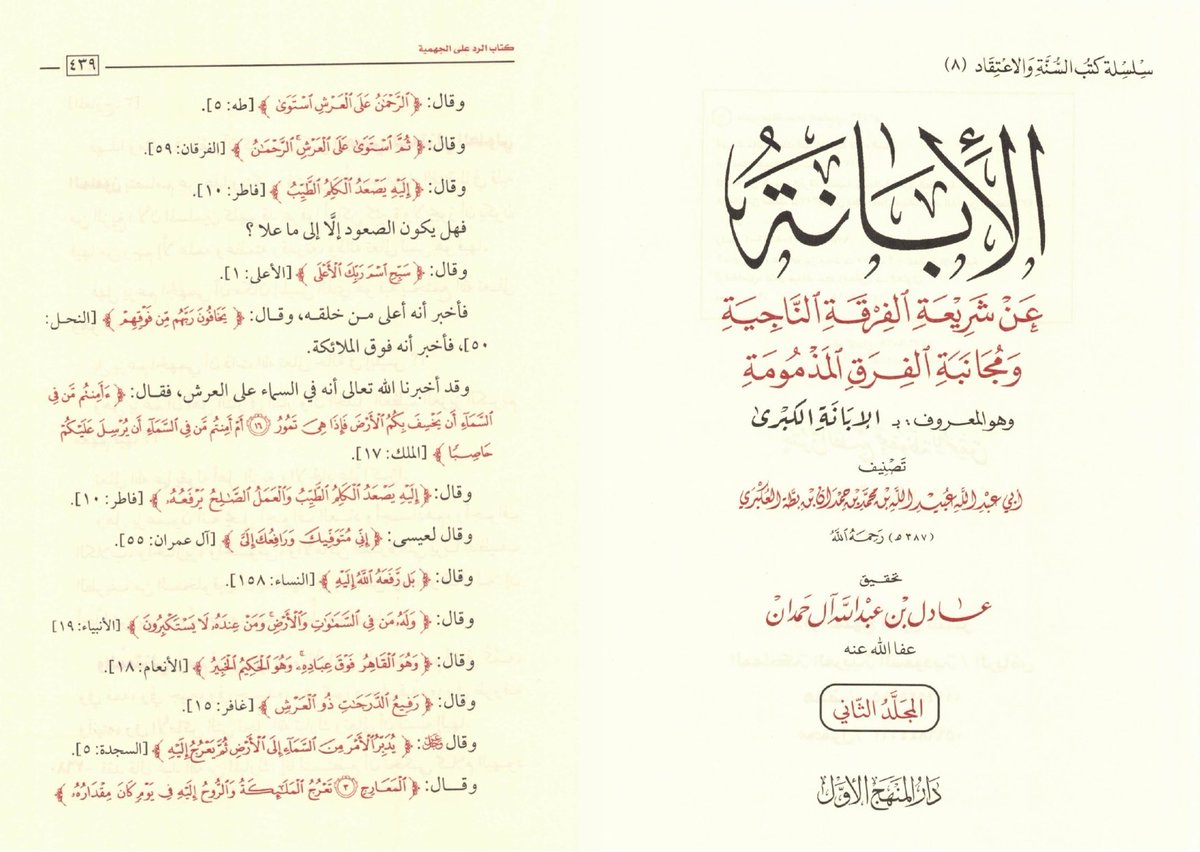 سلسلة كتب السنة والاعتقاد (٨)
الإبانة
عن شريعة الفرقة الناجية
ومجانبة الفرق المذمومة
وهو المعروف: بـ الإبانة الكبرى
تصنيف
أبي عبد الله عبيد الله بن محمد بن حمدان بن بطة العكبري
(٣٨٧ هـ) رحمه الله
تحقيق
عادل بن عبد الله آل حمدان
عفا الله عنه
المجلد الثاني
دار المنهج الأول
كتاب الرد على الجهمية
٤٣٩
وقال: ﴿ٱلرَّحْمَٰنُ عَلَى ٱلْعَرْشِ ٱسْتَوَىٰ﴾ [طه: ٥].
وقال: ﴿ثُمَّ ٱسْتَوَىٰ عَلَى ٱلْعَرْشِ ۚ ٱلرَّحْمَٰنُ﴾ [الفرقان: ٥٩].
وقال: ﴿إِلَيْهِ يَصْعَدُ ٱلْكَلِمُ ٱلطَّيِّبُ﴾ [فاطر: ١٠].
فهل يكون الصعود إلَّا إلى ما علا ؟
وقال: ﴿سَبِّحِ ٱسْمَ رَبِّكَ ٱلْأَعْلَى﴾ [الأعلى: ١].
فأخبر أنه أعلى من خلقه، وقال: ﴿يَخَافُونَ رَبَّهُم مِّن فَوْقِهِمْ﴾ [النحل:
٥٠]، فأخبر أنه فوق الملائكة.
وقد أخبرنا الله تعالى أنه في السماء على العرش، فقال: ﴿ءَأَمِنتُم مَّن فِي
ٱلسَّمَآءِ أَن يَخْسِفَ بِكُمُ ٱلْأَرْضَ فَإِذَا هِيَ تَمُورُ ١٦ أَمْ أَمِنتُم مَّن فِي ٱلسَّمَآءِ أَن يُرْسِلَ عَلَيْكُمْ
حَاصِبًا﴾ [الملك: ١٧].
وقال: ﴿إِلَيْهِ يَصْعَدُ ٱلْكَلِمُ ٱلطَّيِّبُ وَٱلْعَمَلُ ٱلصَّٰلِحُ يَرْفَعُهُۥ﴾ [فاطر: ١٠].
وقال لعيسى: ﴿إِنِّي مُتَوَفِّيكَ وَرَافِعُكَ إِلَيَّ﴾ [آل عمران: ٥٥].
وقال: ﴿بَل رَّفَعَهُ ٱللَّهُ إِلَيْهِ﴾ [النساء: ١٥٨].
وقال: ﴿وَلَهُۥ مَن فِي ٱلسَّمَٰوَٰتِ وَٱلْأَرْضِ ۚ وَمَنْ عِندَهُۥ لَا يَسْتَكْبِرُونَ﴾ [الأنبياء: ١٩]
وقال: ﴿وَهُوَ ٱلْقَاهِرُ فَوْقَ عِبَادِهِۦ ۚ وَهُوَ ٱلْحَكِيمُ ٱلْخَبِيرُ﴾ [الأنعام: ١٨].
وقال: ﴿رَفِيعُ ٱلدَّرَجَٰتِ ذُو ٱلْعَرْشِ﴾ [غافر: ١٥].
وقال ﷻ: ﴿يُدَبِّرُ ٱلْأَمْرَ مِنَ ٱلسَّمَآءِ إِلَى ٱلْأَرْضِ ثُمَّ يَعْرُجُ إِلَيْهِ﴾ [السجدة: ٥].
وقال: ﴿ٱلْمَعَارِجِ ٣ تَعْرُجُ ٱلْمَلَٰٓئِكَةُ وَٱلرُّوحُ إِلَيْهِ فِي يَوْمٍ كَانَ مِقْدَارُهُۥ﴾